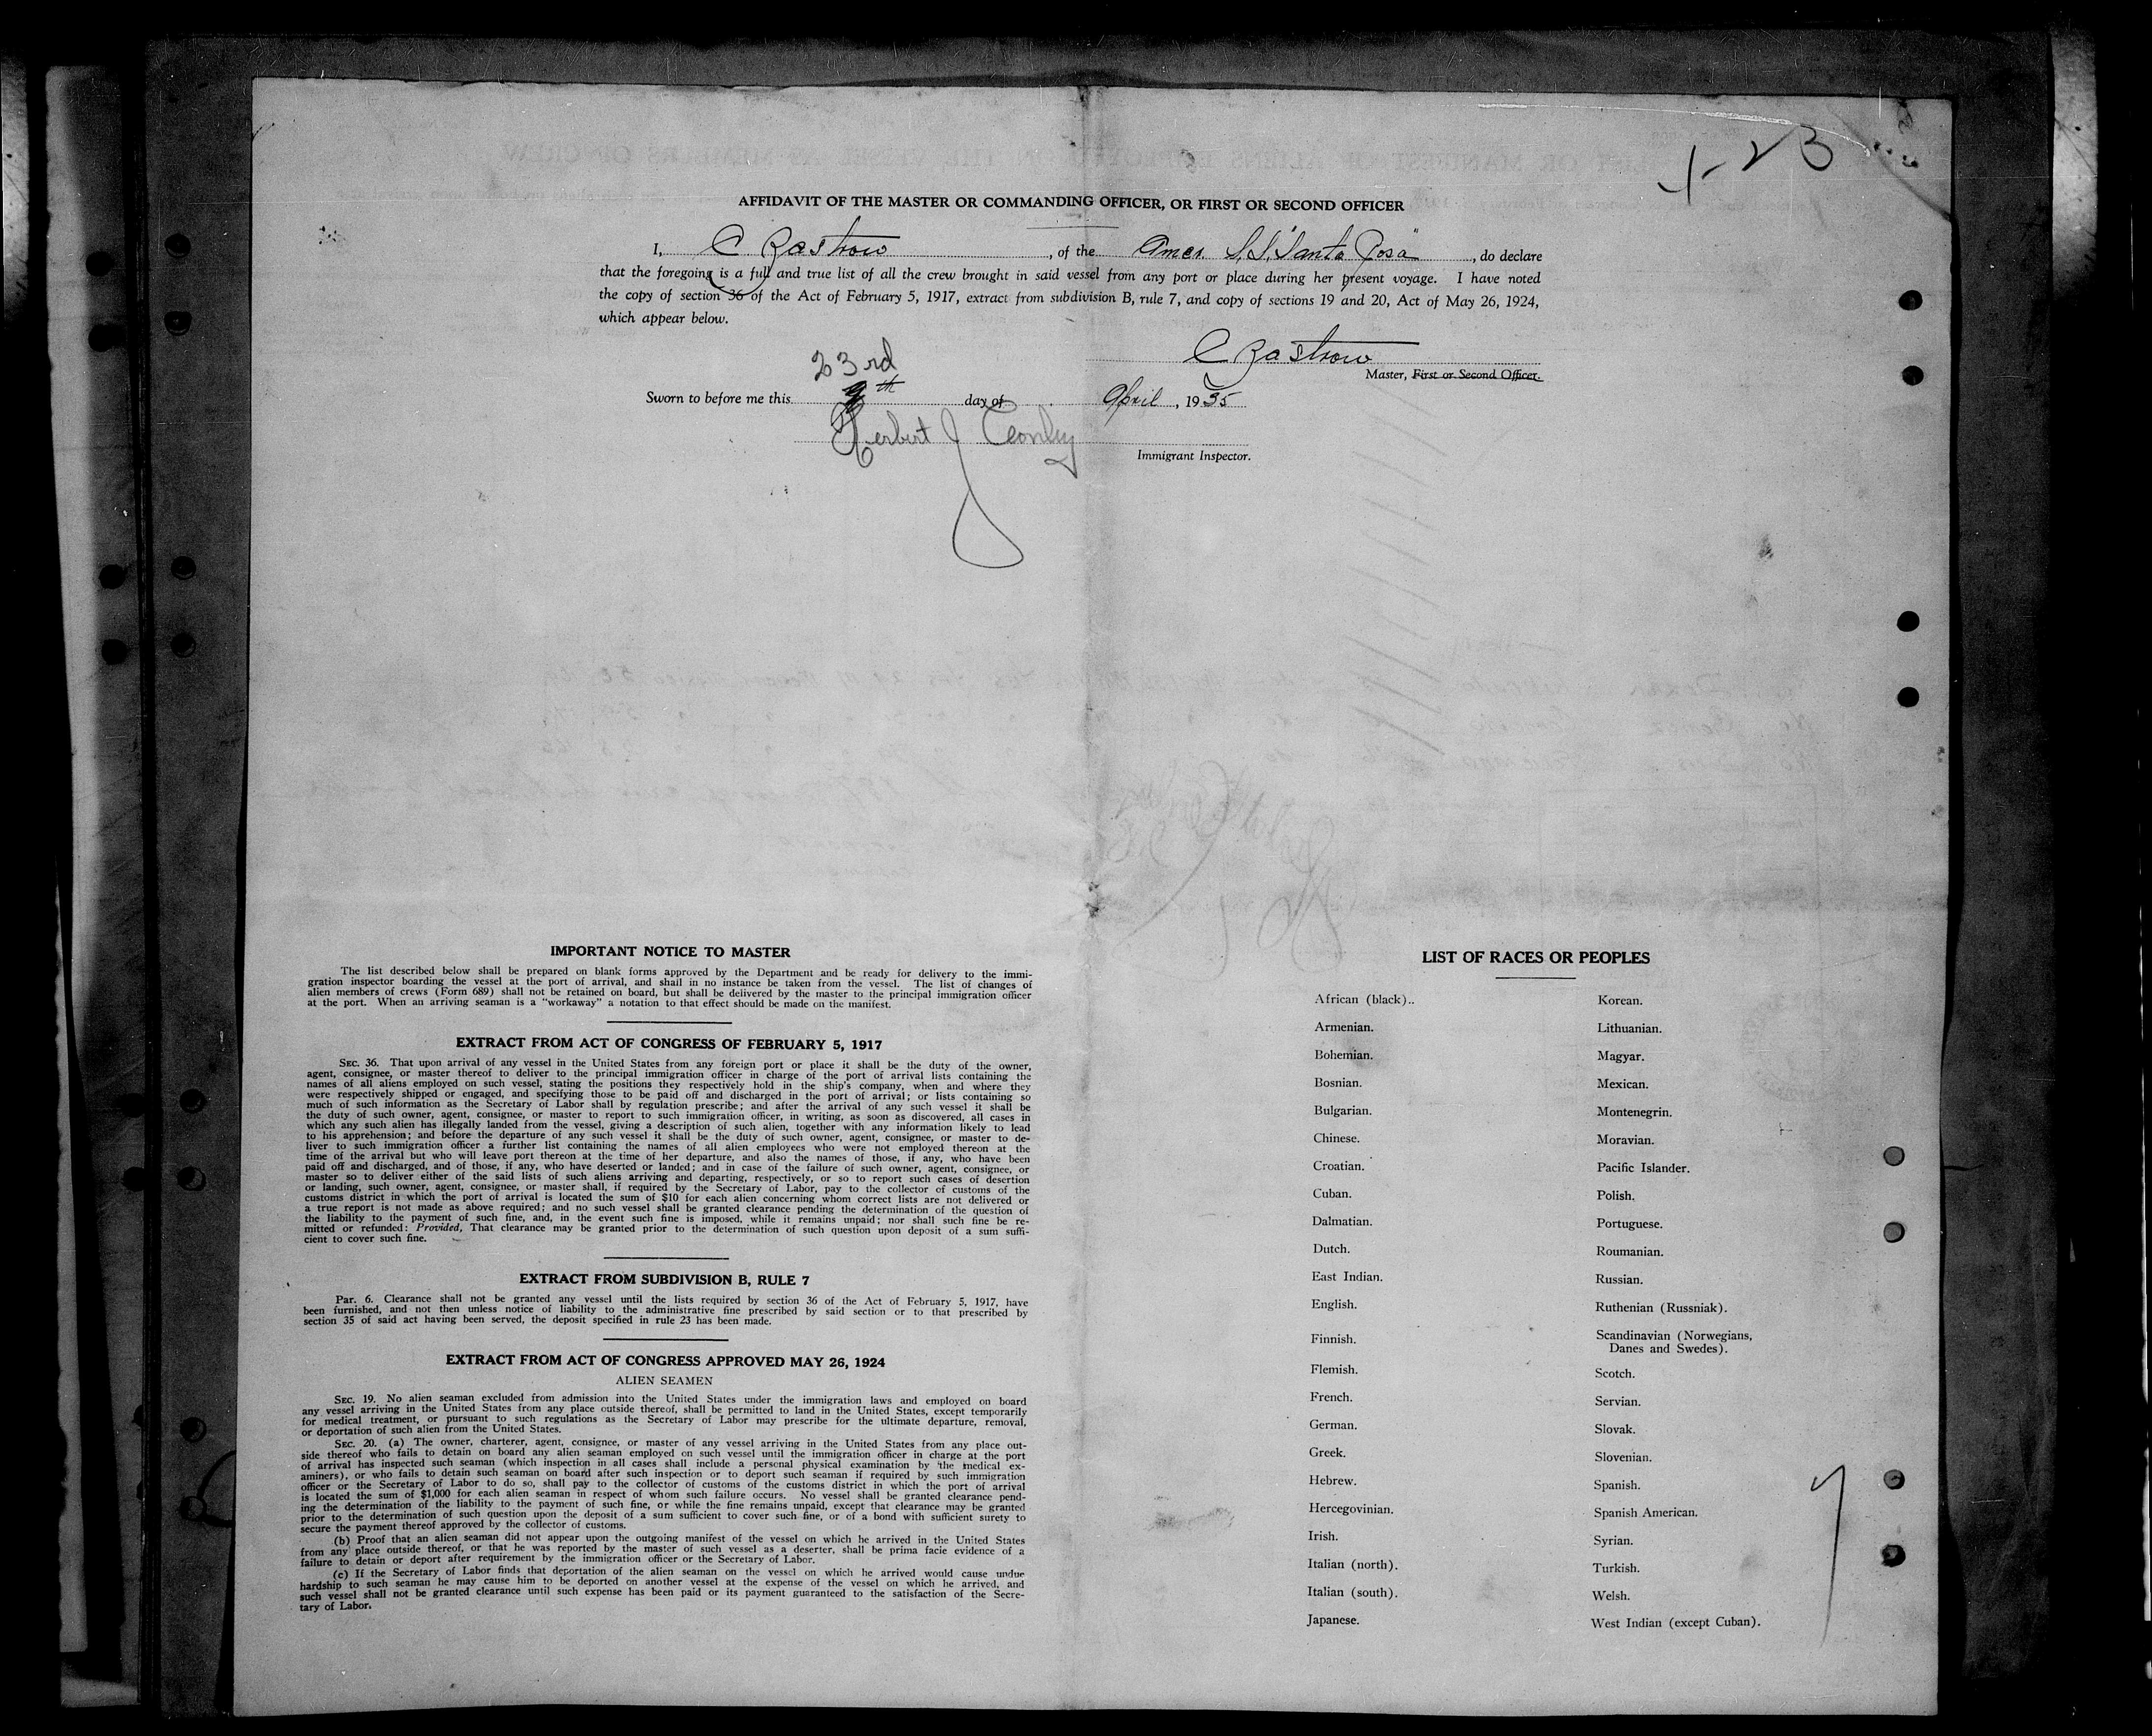 4-23
AFFIDAVIT OF THE MASTER OR COMMANDING OFFICER, OR FIRST OR SECOND OFFICER
I, C Zastrow, of the Amer. S.S. "Santa Rosa", do declare
that the foregoing is a full and true list of all the crew brought in said vessel from any port or place during her present voyage. I have noted
the copy of section 36 of the Act of February 5, 1917, extract from subdivision B, rule 7, and copy of sections 19 and 20, Act of May 26, 1924,
which appear below.
C Zastrow
Master, First or Second Officer.
23rd
Sworn to before me this 9th day of April, 1935
Herbert J
Immigrant Inspector.
IMPORTANT NOTICE TO MASTER
The list described below shall be prepared on blank forms approved by the Department and be ready for delivery to the immi-
gration inspector boarding the vessel at the port of arrival, and shall in no instance be taken from the vessel. The list of changes of
alien members of crews (Form 689) shall not be retained on board, but shall be delivered by the master to the principal immigration officer
at the port. When an arriving seaman is a "workaway" a notation to that effect should be made on the manifest.
EXTRACT FROM ACT OF CONGRESS OF FEBRUARY 5, 1917
SEC. 36. That upon arrival of any vessel in the United States from any foreign port or place it shall be the duty of the owner,
agent, consignee, or master thereof to deliver to the principal immigration officer in charge of the port of arrival lists containing the
names of all aliens employed on such vessel, stating the positions they respectively hold in the ship's company, when and where they
were respectively shipped or engaged, and specifying those to be paid off and discharged in the port of arrival; or lists containing so
much of such information as the Secretary of Labor shall by regulation prescribe; and after the arrival of any such vessel it shall be
the duty of such owner, agent, consignee, or master to report to such immigration officer, in writing, as soon as discovered, all cases in
which any such alien has illegally landed from the vessel, giving a description of such alien, together with any information likely to lead
to his apprehension; and before the departure of any such vessel it shall be the duty of such owner, agent, consignee, or master to de-
liver to such immigration officer a further list containing the names of all alien employees who were not employed thereon at the
time of the arrival but who will leave port thereon at the time of her departure, and also the names of those, if any, who have been
paid off and discharged, and of those, if any, who have deserted or landed; and in case of the failure of such owner, agent, consignee, or
master so to deliver either of the said lists of such aliens arriving and departing, respectively, or so to report such cases of desertion
or landing, such owner, agent, consignee, or master shall, if required by the Secretary of Labor, pay to the collector of customs of the
customs district in which the port of arrival is located the sum of $10 for each alien concerning whom correct lists are not delivered or
a true report is not made as above required; and no such vessel shall be granted clearance pending the determination of the question of
the liability to the payment of such fine, and, in the event such fine is imposed, while it remains unpaid; nor shall such fine be re-
mitted or refunded: Provided, That clearance may be granted prior to the determination of such question upon deposit of a sum suffi-
cient to cover such fine.
EXTRACT FROM SUBDIVISION B, RULE 7
PAR. 6. Clearance shall not be granted any vessel until the lists required by section 36 of the Act of February 5, 1917, have
been furnished, and not then unless notice of liability to the administrative fine prescribed by said section or to that prescribed by
section 35 of said act having been served, the deposit specified in rule 23 has been made.
EXTRACT FROM ACT OF CONGRESS APPROVED MAY 26, 1924
ALIEN SEAMEN
SEC. 19. No alien seaman excluded from admission into the United States under the immigration laws and employed on board
any vessel arriving in the United States from any place outside thereof, shall be permitted to land in the United States, except temporarily
for medical treatment, or pursuant to such regulations as the Secretary of Labor may prescribe for the ultimate departure, removal,
or deportation of such alien from the United States.
SEC. 20. (a) The owner, charterer, agent, consignee, or master of any vessel arriving in the United States from any place out-
side thereof who fails to detain on board any alien seaman employed on such vessel until the immigration officer in charge at the port
of arrival has inspected such seaman (which inspection in all cases shall include a personal physical examination by the medical ex-
aminers), or who fails to detain such seaman on board after such inspection or to deport such seaman if required by such immigration
officer or the Secretary of Labor to do so, shall pay to the collector of customs of the customs district in which the port of arrival
is located the sum of $1,000 for each alien seaman in respect of whom such failure occurs. No vessel shall be granted clearance pend-
ing the determination of the liability to the payment of such fine, or while the fine remains unpaid, except that clearance may be granted
prior to the determination of such question upon the deposit of a sum sufficient to cover such fine, or of a bond with sufficient surety to
secure the payment thereof approved by the collector of customs.
(b) Proof that an alien seaman did not appear upon the outgoing manifest of the vessel on which he arrived in the United States
from any place outside thereof, or that he was reported by the master of such vessel as a deserter, shall be prima facie evidence of a
failure to detain or deport after requirement by the immigration officer or the Secretary of Labor.
(c) If the Secretary of Labor finds that deportation of the alien seaman on the vessel on which he arrived would cause undue
hardship to such seaman he may cause him to be deported on another vessel at the expense of the vessel on which he arrived, and
such vessel shall not be granted clearance until such expense has been paid or its payment guaranteed to the satisfaction of the Secre-
tary of Labor.
LIST OF RACES OR PEOPLES
African (black)..
Armenian.
Bohemian.
Bosnian.
Bulgarian.
Chinese.
Croatian.
Cuban.
Dalmatian.
Dutch.
East Indian.
English.
Finnish.
Flemish.
French.
German.
Greek.
Hebrew.
Hercegovinian.
Irish.
Italian (north).
Italian (south).
Japanese.
Korean.
Lithuanian.
Magyar.
Mexican.
Montenegrin.
Moravian.
Pacific Islander.
Polish.
Portuguese.
Roumanian.
Russian.
Ruthenian (Russniak).
Scandinavian (Norwegians,
Danes and Swedes).
Scotch.
Servian.
Slovak.
Slovenian.
Spanish.
Spanish American.
Syrian.
Turkish.
Welsh.
West Indian (except Cuban).